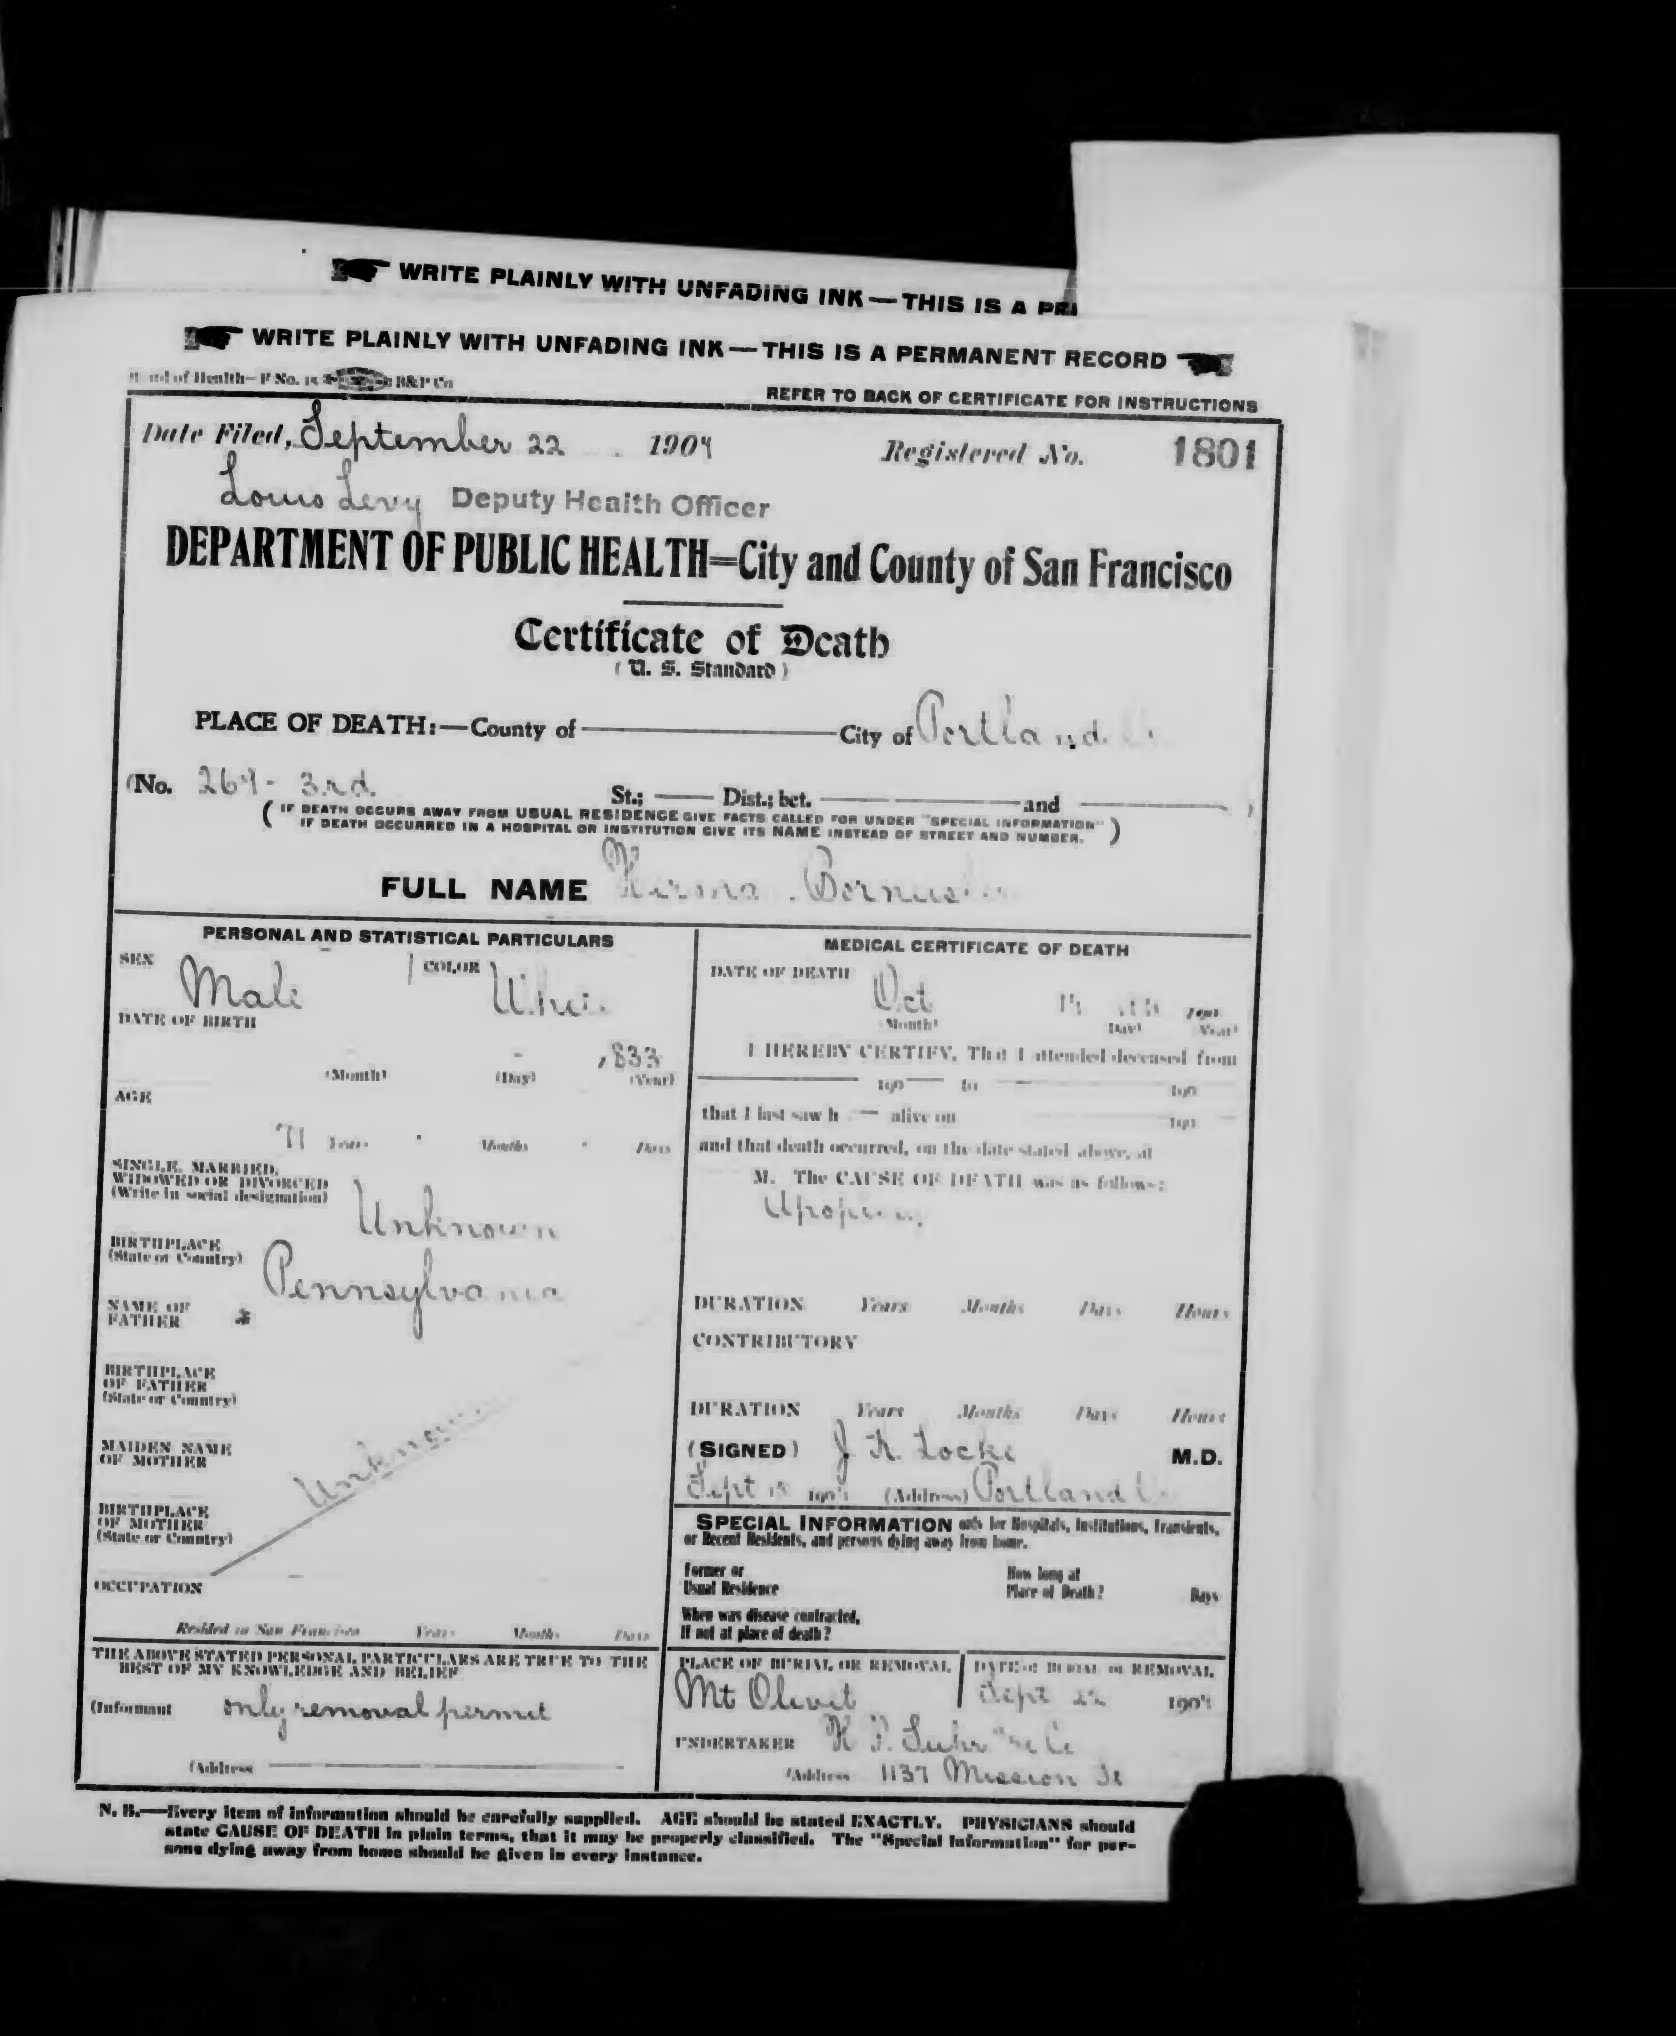 WRITE PLAINLY WITH UNFADING INK—THIS IS A
WRITE PLAINLY WITH UNFADING INK—THIS IS A PERMANENT RECORD
of Health—F No. 15 B&P Co
REFER TO BACK OF CERTIFICATE FOR INSTRUCTIONS
Date Filed, September 22 1904 Registered No. 1801
Louis Levy Deputy Health Officer
DEPARTMENT OF PUBLIC HEALTH=City and County of San Francisco
Certificate of Death
(U. S. Standard)
PLACE OF DEATH:—County of City of Portland
(No. 3rd St.; Dist.; bet. and )
(IF DEATH OCCURS AWAY FROM USUAL RESIDENCE GIVE FACTS CALLED FOR UNDER "SPECIAL INFORMATION"
IF DEATH OCCURRED IN A HOSPITAL OR INSTITUTION GIVE ITS NAME INSTEAD OF STREET AND NUMBER.)
FULL NAME
PERSONAL AND STATISTICAL PARTICULARS
SEX Male COLOR
DATE OF BIRTH
833
(Month) (Day) (Year)
AGE
71 Years Months Days
SINGLE, MARRIED,
WIDOWED OR DIVORCED
(Write in social designation)
Unknown
BIRTHPLACE
(State or Country)
Pennsylvania
NAME OF
FATHER
BIRTHPLACE
OF FATHER
(State or Country)
Unknown
MAIDEN NAME
OF MOTHER
BIRTHPLACE
OF MOTHER
(State or Country)
OCCUPATION
Resided in San Francisco Years Months Days
THE ABOVE STATED PERSONAL PARTICULARS ARE TRUE TO THE
BEST OF MY KNOWLEDGE AND BELIEF
(Informant only removal permit
(Address
MEDICAL CERTIFICATE OF DEATH
DATE OF DEATH
Oct 190
(Month) (Day) (Year)
I HEREBY CERTIFY, That I attended deceased from
190 to 190
that I last saw h alive on 190
and that death occurred, on the date stated above, at
M. The CAUSE OF DEATH was as follows:
DURATION Years Months Days Hours
CONTRIBUTORY
DURATION Years Months Days Hours
(SIGNED) J K Locke M.D.
Sept 1904 (Address) Portland
SPECIAL INFORMATION only for Hospitals, Institutions, Transients,
or Recent Residents, and persons dying away from home.
Former or
Usual Residence
How long at
Place of Death? Days
When was disease contracted,
If not at place of death?
PLACE OF BURIAL OR REMOVAL
Mt Olivet
DATE of BURIAL or REMOVAL
Sept 22 1904
UNDERTAKER Suhr
(Address 1137 Mission St
N. B.—Every item of information should be carefully supplied. AGE should be stated EXACTLY. PHYSICIANS should
state CAUSE OF DEATH in plain terms, that it may be properly classified. The "Special Information" for per-
sons dying away from home should be given in every instance.